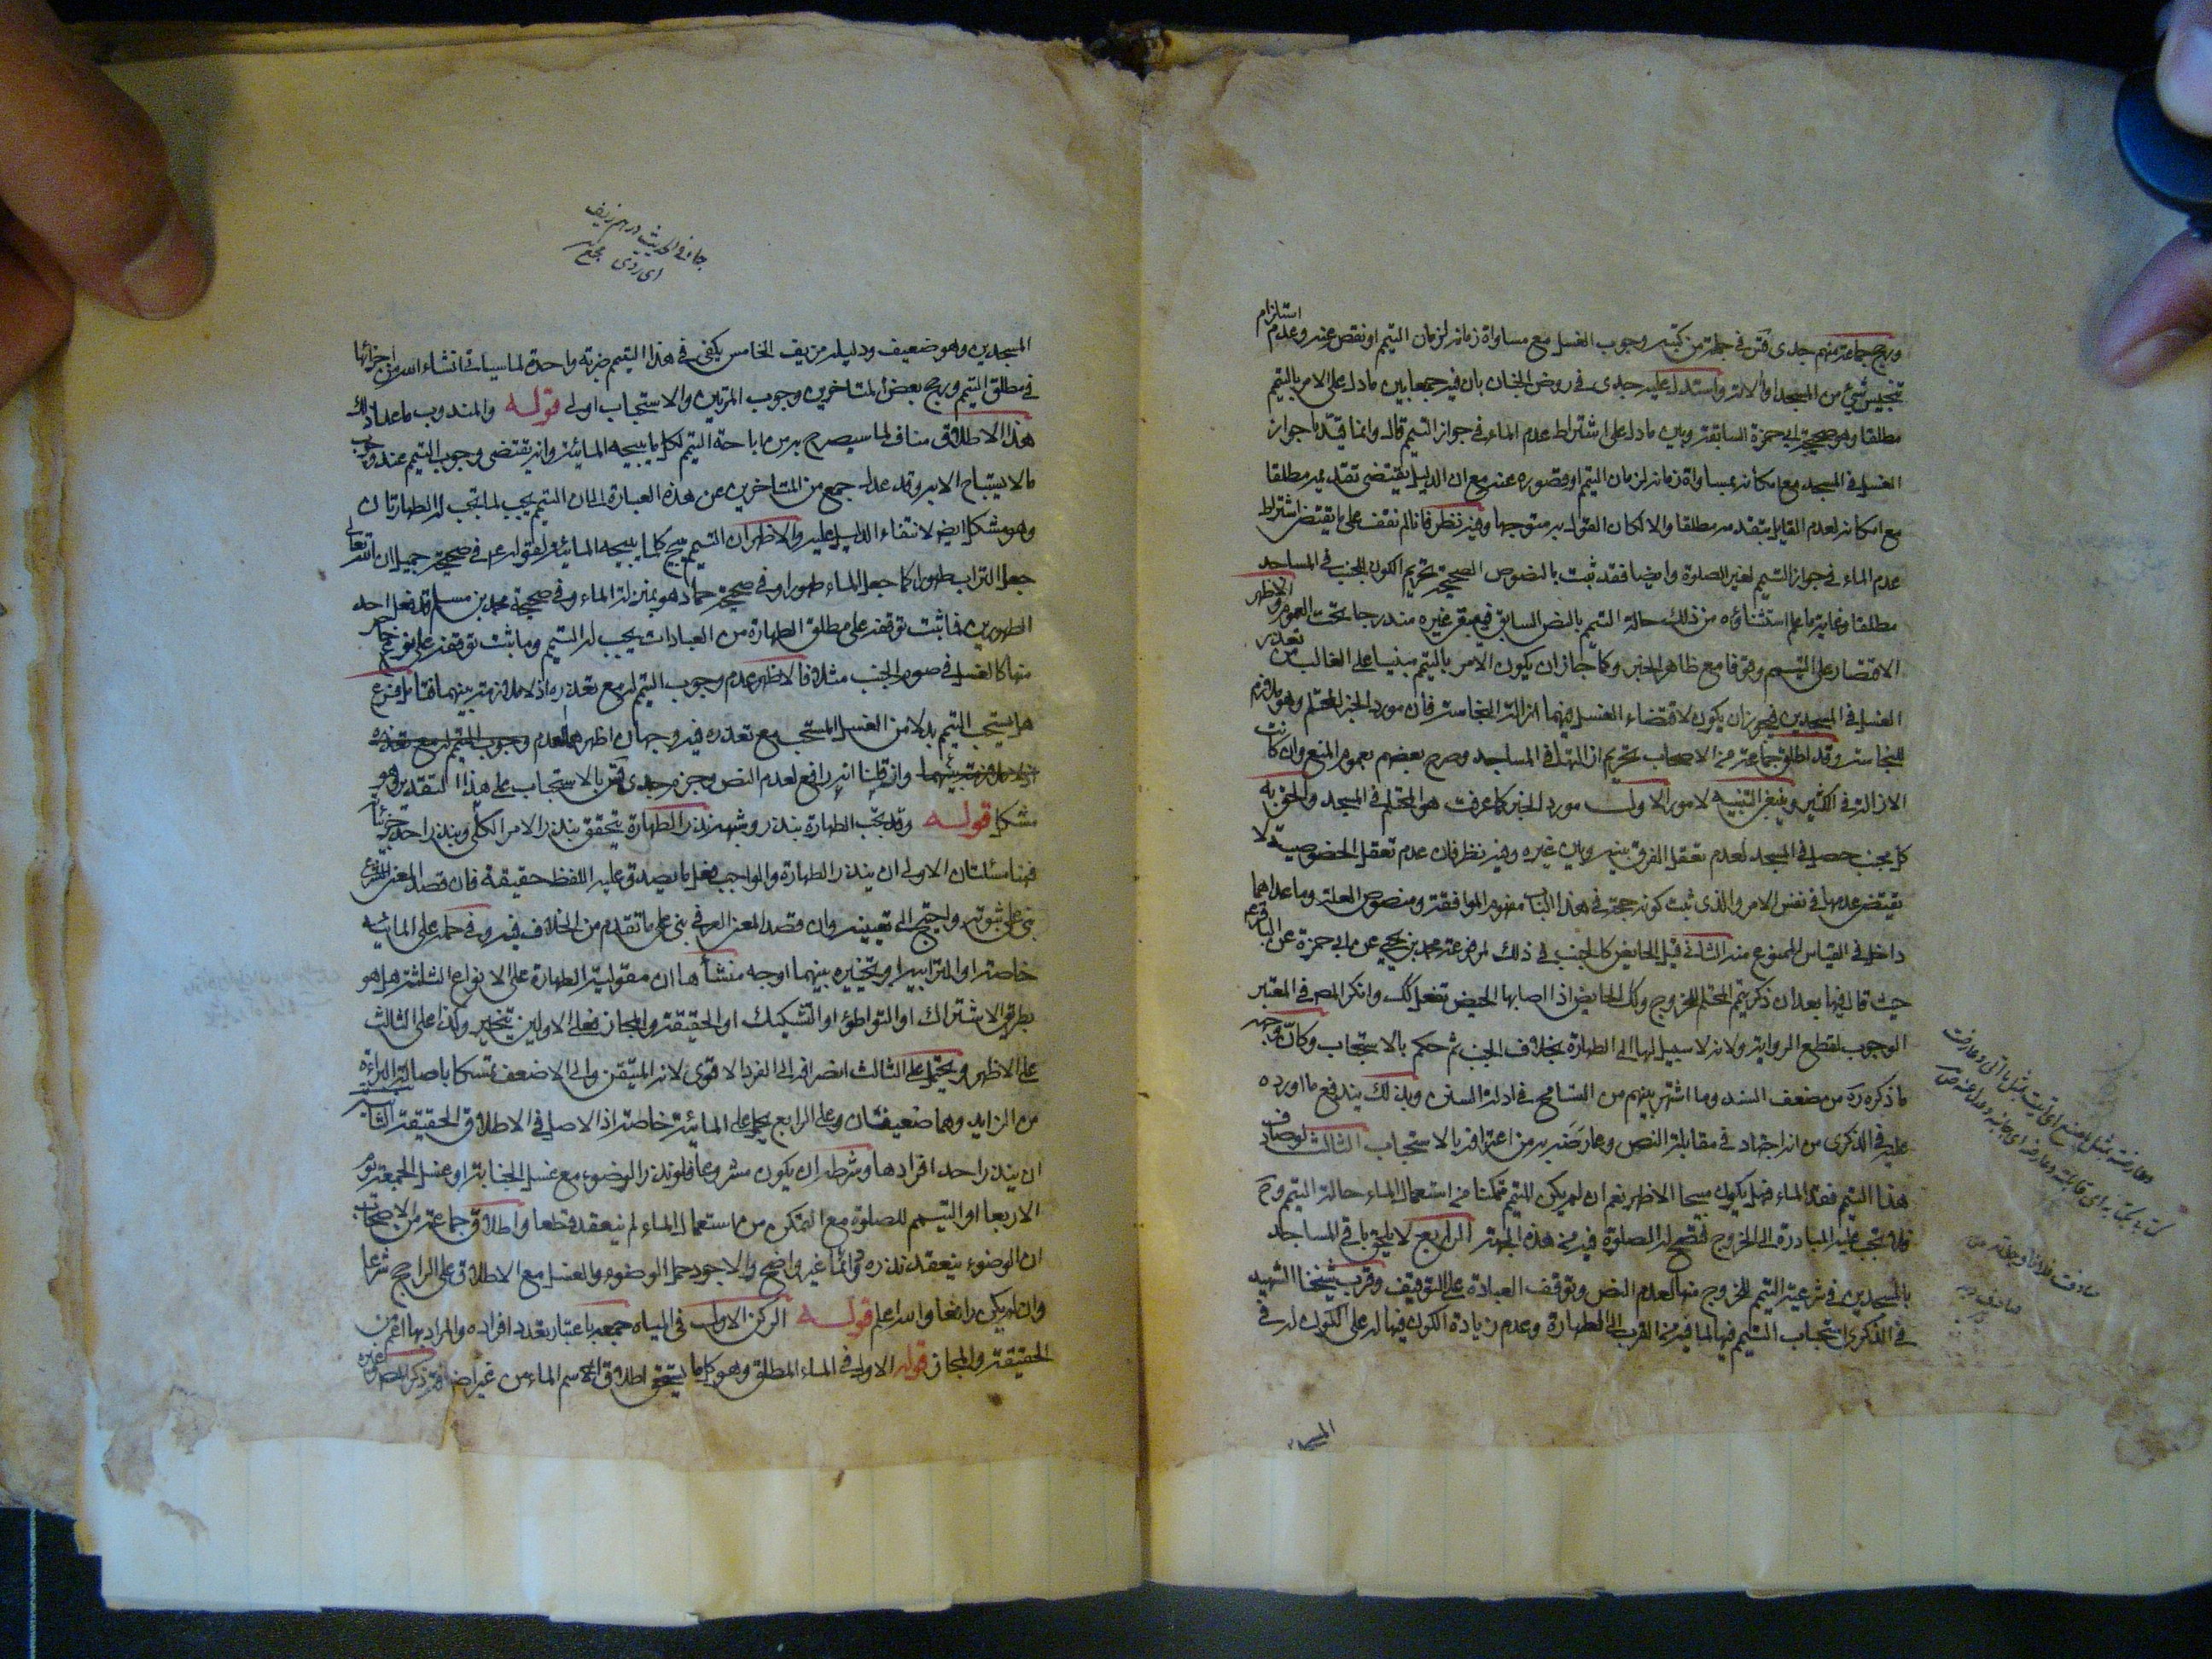 ورجح جماعة منهم جدى قده فى جملة من كتبه وجوب الغسل مع مساواة زمانه لزمان التيمم او نقصه عنه وعدم استلزام
تنجيس شئ من المسجد او الاته واستدل عليه جدى فى روض الجنان بان فيه جمعا بين ما دل على الامر بالتيمم
مطلقا وهو صحيحة ابى حمزة السابقة وبين ما دل على اشتراط عدم الماء فى جواز التيمم قال وانما قيدنا جواز
الغسل فى المسجد مع امكانه بمساواة زمانه لزمان التيمم او قصوره عنه مع ان الدليل يقتضى تقديمه مطلقا
مع امكانه لعدم القايل بتقديمه مطلقا والا لكان القول به متوجها وفيه نظر فانا لم نقف على ما يقتضى اشتراط
عدم الماء فى جواز التيمم لغير الصلوة وايضا فقد ثبت بالنصوص الصحيحة تحريم الكون للجنب فى المساجد
مطلقا وغاية ما علم استثناؤه من ذلك حالة التيمم بالنص السابق فيبقى غيره مندرجا تحت العموم والاظهر
الاقتصار على التيمم وقوفا مع ظاهر الخبر وكما جاز ان يكون الامر بالتيمم مبنيا على الغالب من تعذر
الغسل فى المسجدين فيجوز ان يكون لاقتضاء الغسل فيهما ازالة النجاسة فان مورد الخبر المحتلم وهو ملازم
للنجاسة وقد اطلق جماعة من الاصحاب تحريم ازالتها فى المساجد وصرح بعضهم بعموم المنع وان كانت
الازالة فى الكثير وينبغى التنبيه لامور الاول مورد الخبر كما عرفت هو المحتلم فى المسجد والحق به
كل مجنب حصل فى المسجد لعدم تعقل الفرق بينه وبين غيره وفيه نظر فان عدم تعقل الخصوصية لا
يقتضى عدمها فى نفس الامر والذى ثبت كونه حجة فى هذا الباب مفهوم الموافقة ومنصوص العلة وما عداهما
داخل فى القياس الممنوع منه الثانى قيل الحايض كالجنب فى ذلك لمرفوعة محمد بن يحيى عن ابى حمزة عن الباقر ع
حيث قال فيها بعد ان ذكر تيمم المحتلم للخروج وكذلك الحايض اذا اصابها الحيض تفعل كك وانكر المص فى المعتبر
الوجوب لقطع الرواية ولانه لا سبيل لها الى الطهارة بخلاف الجنب ثم حكم بالاستحباب وكانّ وجهه
ما ذكره ره من ضعف السند وما اشتهر بينهم من التسامح فى ادلة السنن وبذلك يندفع ما اورده
عليه فى الذكرى من انه اجتهاد فى مقابلة النص وعارضه به من اعترافه بالاستحباب الثالث لو صادف
هذا التيمم فقد الماء فهل يكون مبيحا الاظهر نعم ان لم يكن المتيمم متمكنا من استعمال الماء حالة التيمم وح
فلا تجب عليه المبادرة الى الخروج فتصح له الصلوة فيه من هذه الجهة الرابع لا يلحق باقى المساجد
بالمسجدين فى شرعية التيمم للخروج منها لعدم النص وتوقف العبادة على التوقيف وقرب شيخنا الشهيد
فى الذكرى استحباب التيمم فيها لما فيه من القرب الى الطهارة وعدم زيادة الكون فيها له على الكون له فى
صادف
المسجدين
جاء فى الحديث دراهم زيف
اى ردى مجمع
المسجدين وهو ضعيف ودليله مزيف الخامس يكفى فى هذا التيمم ضربة واحدة لما سياتى انشاء الله من اجزائها
فى مطلق التيمم ورجح بعض المتاخرين وجوب المرتين والاستحباب اولى قوله والمندوب ما عدا ذلك
هذا الاطلاق مناف لما سيصرح به من اباحة التيمم لكل ما يبيحه المائية وانه يقتضى وجوب التيمم عند وجوب
ما لا يستباح الا به وقد عدل جمع من المتاخرين عن هذه العبارة الى ان التيمم يجب لما تجب له الطهارتان
وهو مشكل ايضا لانتفاء الدليل عليه والاظهر ان التيمم يبيح كلما يبيحه المائية لقوله ع فى صحيحة جميل ان الله تعالى
جعل التراب طهورا كما جعل الماء طهورا وفى صحيحة حماد هو بمنزلة الماء وفى صحيحة محمد بن مسلم قد فعل احد
الطهورين فما ثبت توقفه على مطلق الطهارة من العبادات يجب له التيمم وما ثبت توقفه على نوع خاص
منها كالغسل فى صوم الجنب مثلا فالاظهر عدم وجوب التيمم له مع تعذره اذ لا ملازمة بينهما فتامل فرع
هل يستحب التيمم بدلا من الغسل المستحب مع تعذره فيه وجهان اظهرهما العدم وجوب التيمم له مع تعذره
اذ لا ملازمة بينهما وان قلنا انه رافع لعدم النص وجزم جدى قده بالاستحباب على هذا التقدير وهو
مشكل قوله وقد تجب الطهارة بنذر وشبهه نذر الطهارة يتحقق بنذر الامر الكلى وبنذر احد جزئياته
فهنا مسئلتان الاولى ان ينذر الطهارة والواجب فعل ما يصدق عليه اللفظ حقيقة فان قصد المعنى الشرعى
بنى على ثبوته واحتج الى تعيينه وان قصد المعنى العرفى بنى على ما تقدم من الخلاف فيه وفى حمله على المائية
خاصة او الترابية او تخييره بينهما اوجه منشأها ان مقولية الطهارة على الانواع الثلثة هل هو
بطريق الاشتراك او التواطؤ او التشكيك او الحقيقة والمجاز فعلى الاولين يتخير وكذا على الثالث
على الاظهر ويحتمل على الثالث انصرافه الى الفرد الاقوى لانه المتيقن والى الاضعف تمسكا باصالة البراءة
من الزايد وهما ضعيفان وعلى الرابع يحمل على المائية خاصة اذ الاصل فى الاطلاق الحقيقة الثانية
ان ينذر احد افرادها وشرطه ان يكون مشروعا فلو نذر الوضوء مع غسل الجنابة او غسل الجمعة يوم
الاربعا او التيمم للصلوة مع التمكن من استعمال الماء لم ينعقد قطعا واطلاق جماعة من الاصحاب
ان الوضوء ينعقد نذره دائما غير واضح والاجود حمل الوضوء والغسل مع الاطلاق على الراجح شرعا
وان لم يكن رافعا والله اعلم قوله الركن الاول فى المياه جمعه باعتبار تعدد افراده والمراد بها اعم من
الحقيقة والمجاز قوله الاول فى الماء المطلق وهو كل ما يستحق اطلاق اسم الماء من غير اضافة ذكر المص وغيره